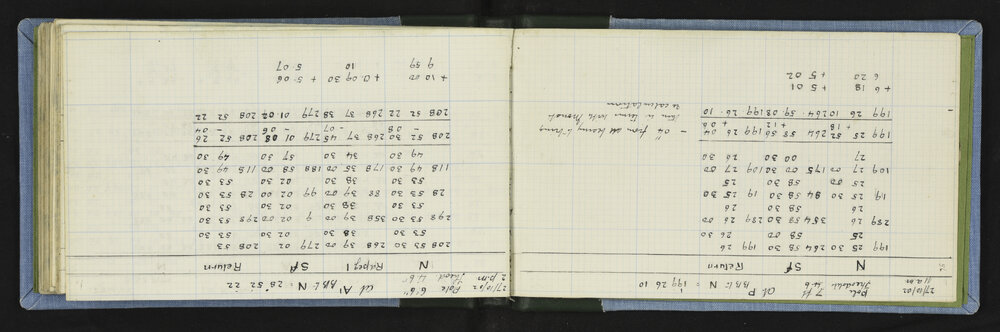 27/10/02 pole 7 ft at P BRL: N = 199 26 10
11 a.m Theodol. 4.6
N SF Return
199 25 30 264 58 30 199 26
25 58 00 26 30
289 26 354 58 30 289 26 00
26 58 30 26
19 25 30 84 58 30 19 25 30
25 00 58 30 25
109 27 00 175 00 30 109 27 00
27 00 30 26 30
199 25 52 264 58 56 199 26 04
+18 +12 +06
199 26 10 264 59 08 199 26 10
- 04 from all
+ 6 18 + 5 01
6 20 + 5 02
27/10/02 Pole 6.6 at A1 BRL: N = 208 52 22
2 p.m Theod 4.6
N 1 SF Return
208 53 30 268 39 00 279 02 208 53
53 30 38 30 02 00 53 30
298 53 30 358 39 00 9 02 00 298 53 30
53 30 38 30 02 30 53 30
28 53 30 88 39 00 99 02 00 28 53 30
53 30 38 30 02 30 53 30
118 49 30 178 35 00 188 58 00 118 49 30
49 30 34 30 57 30 49 30
208 52 30 268 37 45 279 01 08 208 52 26
- 08 - 07 - 06 - 04
208 52 22 268 37 38 279 01 02 208 52 22
+ 10 00 + 0 09 30 + 5 06
9 59 10 5 07